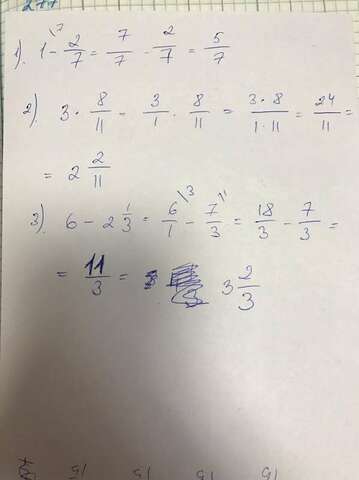 277
1). 1 \7 - 2/7 = 7/7 - 2/7 = 5/7
2). 3 · 8/11 - 3/1 · 8/11 = 3·8/1·11 = 24/11 =
= 2 2/11
3). 6 - 2 1/3 = 6/1 \3 - 7/3 \1 = 18/3 - 7/3 =
= 11/3 = 3 2/3